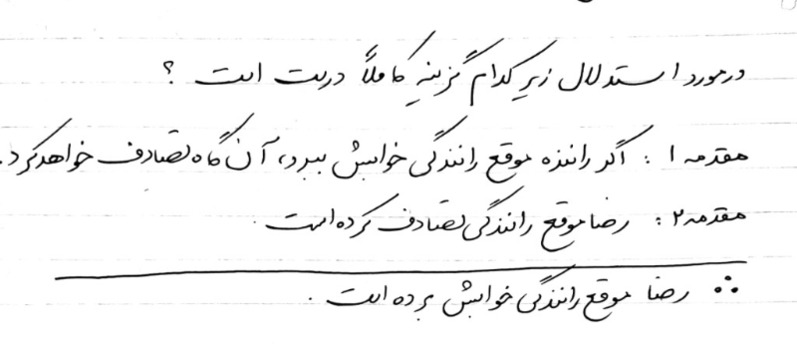 درمورد استدلال زیر کدام گزینه کاملاً درست است ؟
مقدمه ۱ : اگر راننده موقع رانندگی خوابش ببرد، آن گاه تصادف خواهد کرد.
مقدمه ۲ : رضا موقع رانندگی تصادف کرده است.
∴ رضا موقع رانندگی خوابش برده است .